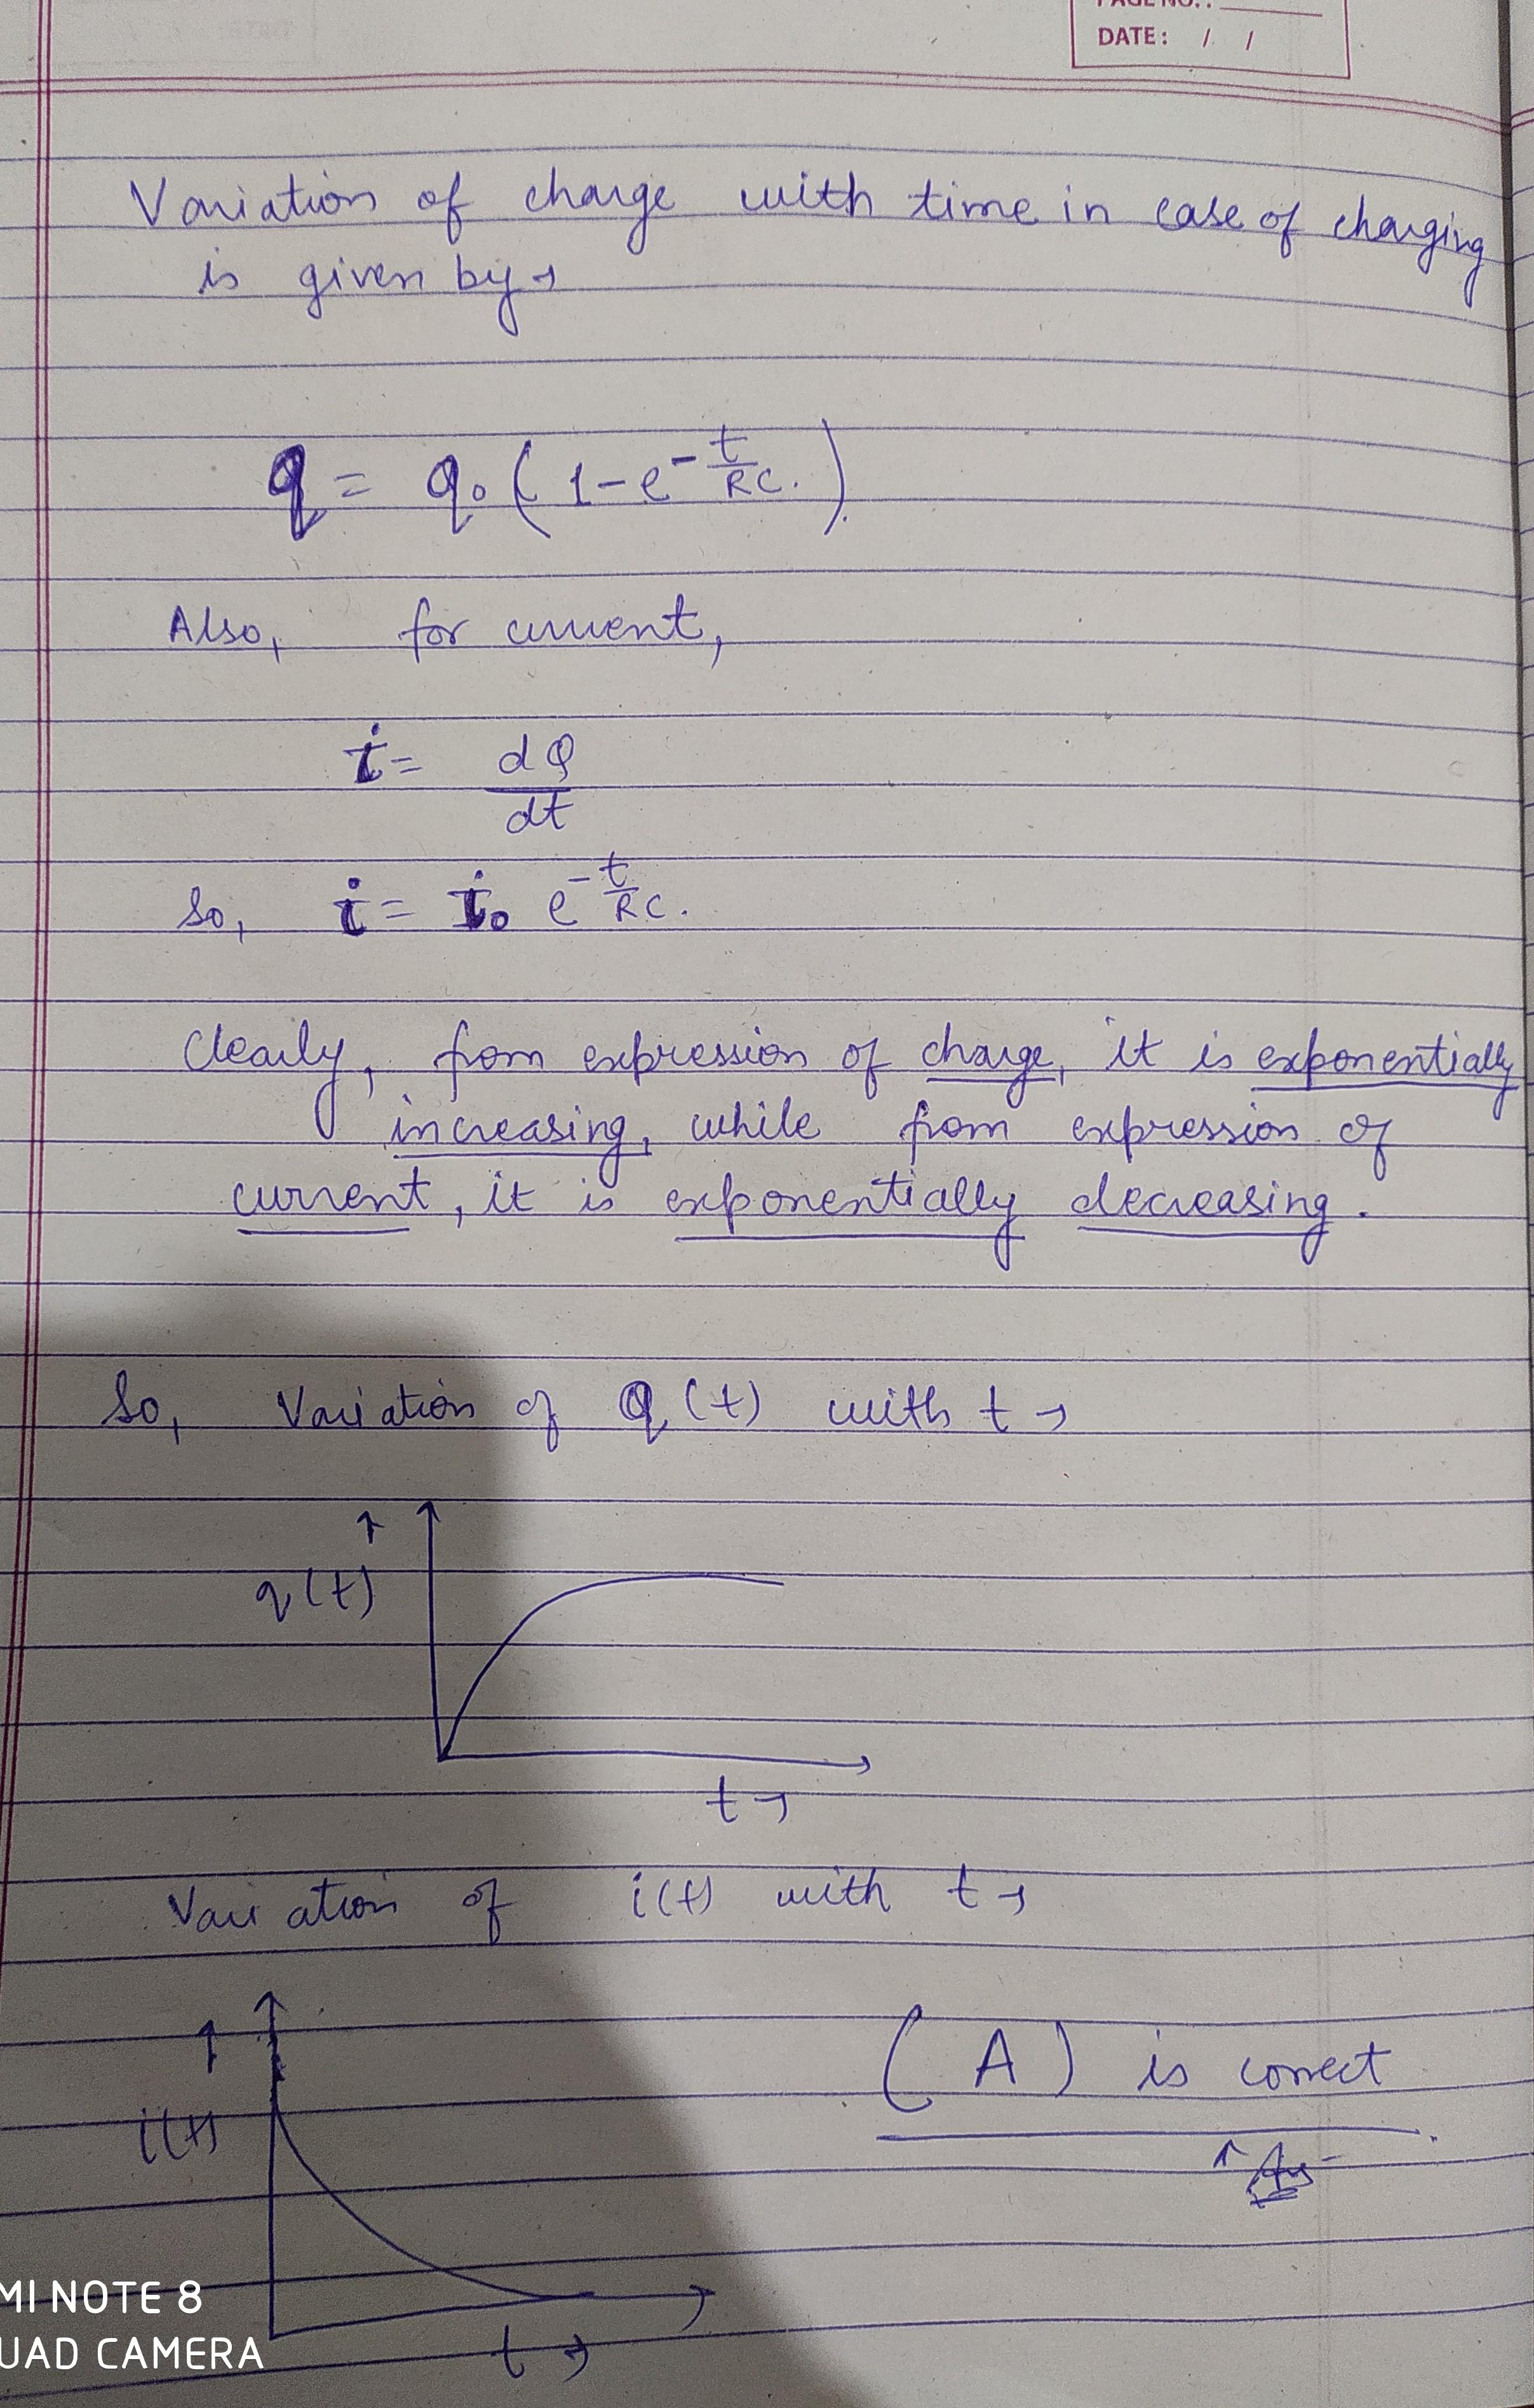 PAGE NO.:
DATE: / /
Variation of charge with time in case of charging
is given by →
q = q₀ ( 1 - e^{-t/RC} ).
Also, for current,
i = dQ/dt
So, i = i₀ e^{-t/RC}.
Clearly, from expression of charge, it is exponentially
increasing, while from expression of
current, it is exponentially decreasing.
So, Variation of Q(t) with t →
↑
q(t)
t →
Variation of i(t) with t →
↑
i(t)
(A) is correct.
↑ Ans
t →
MI NOTE 8
UAD CAMERA